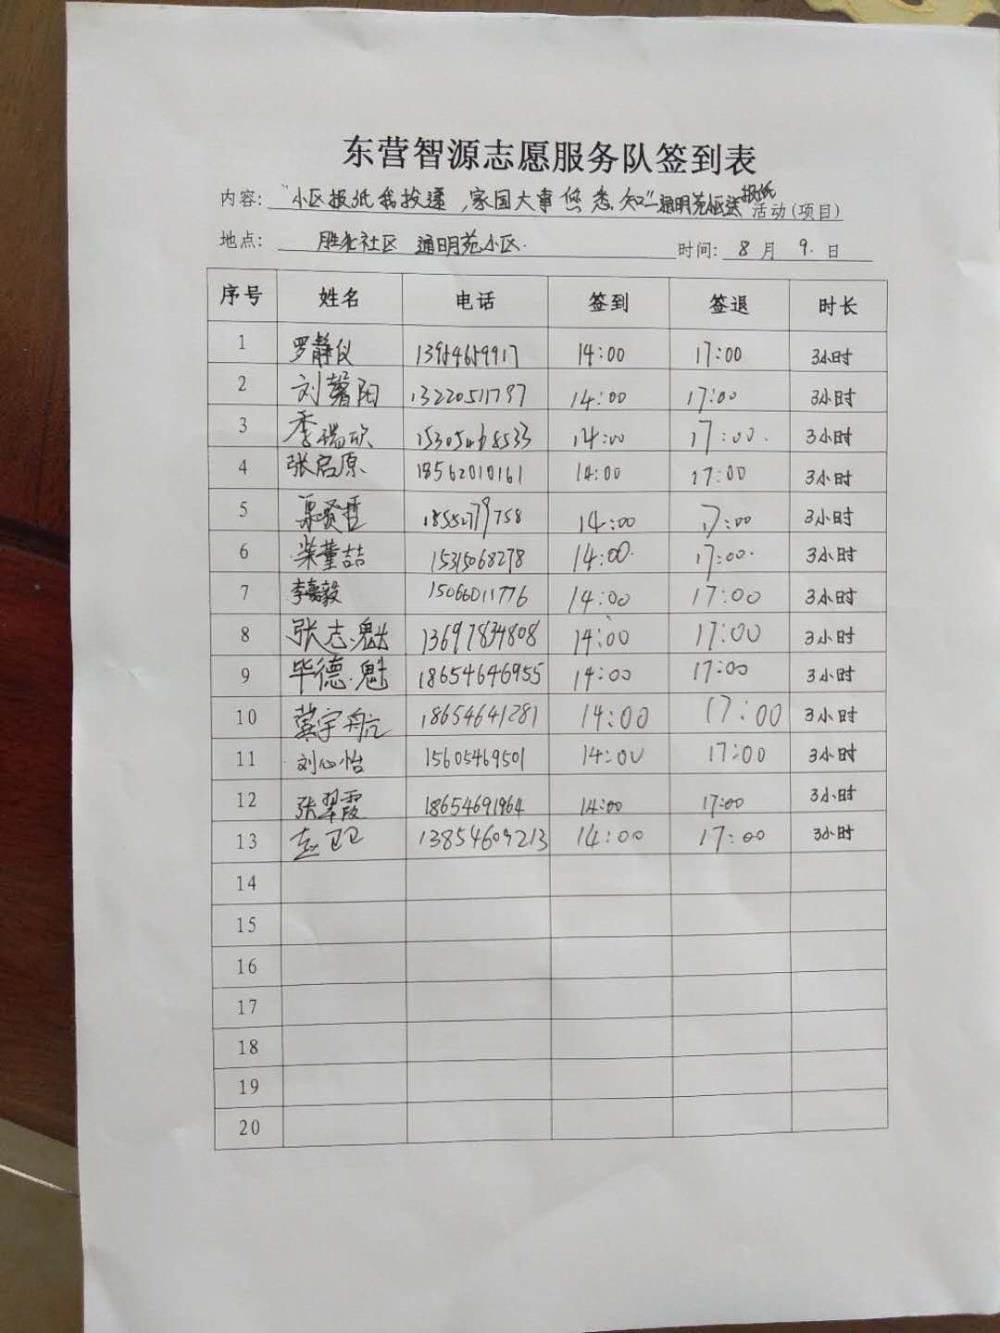 东营智源志愿服务队签到表
内容: "小区报纸我投递,家国大事您悉知"通明苑 送报纸 活动(项目)
地点: 胜北社区 通明苑小区. 时间: 8 月 9. 日
序号 姓名 电话 签到 签退 时长
1 罗静仪 13954659917 14:00 17:00 3小时
2 刘馨阳 13220511797 14:00 17:00 3小时
3 季瑞欣 15305468533 14:00 17:00. 3小时
4 张启原 18562010161 14:00 17:00 3小时
5 渠贤哲 18552779758 14:00 17:00 3小时
6 柴董喆 15315068278 14:00. 17:00. 3小时
7 李毅 15066011776 14:00 17:00 3小时
8 张志魁 13697834808 14:00 17:00 3小时
9 毕德魁 18654646955 14:00 17:00 3小时
10 冀宇航 18654641281 14:00 17:00 3小时
11 刘心怡 15605469501 14:00 17:00 3小时
12 张翠霞 18654691964 14:00 17:00 3小时
13 赵卫卫 13854609213 14:00 17:00 3小时
14
15
16
17
18
19
20